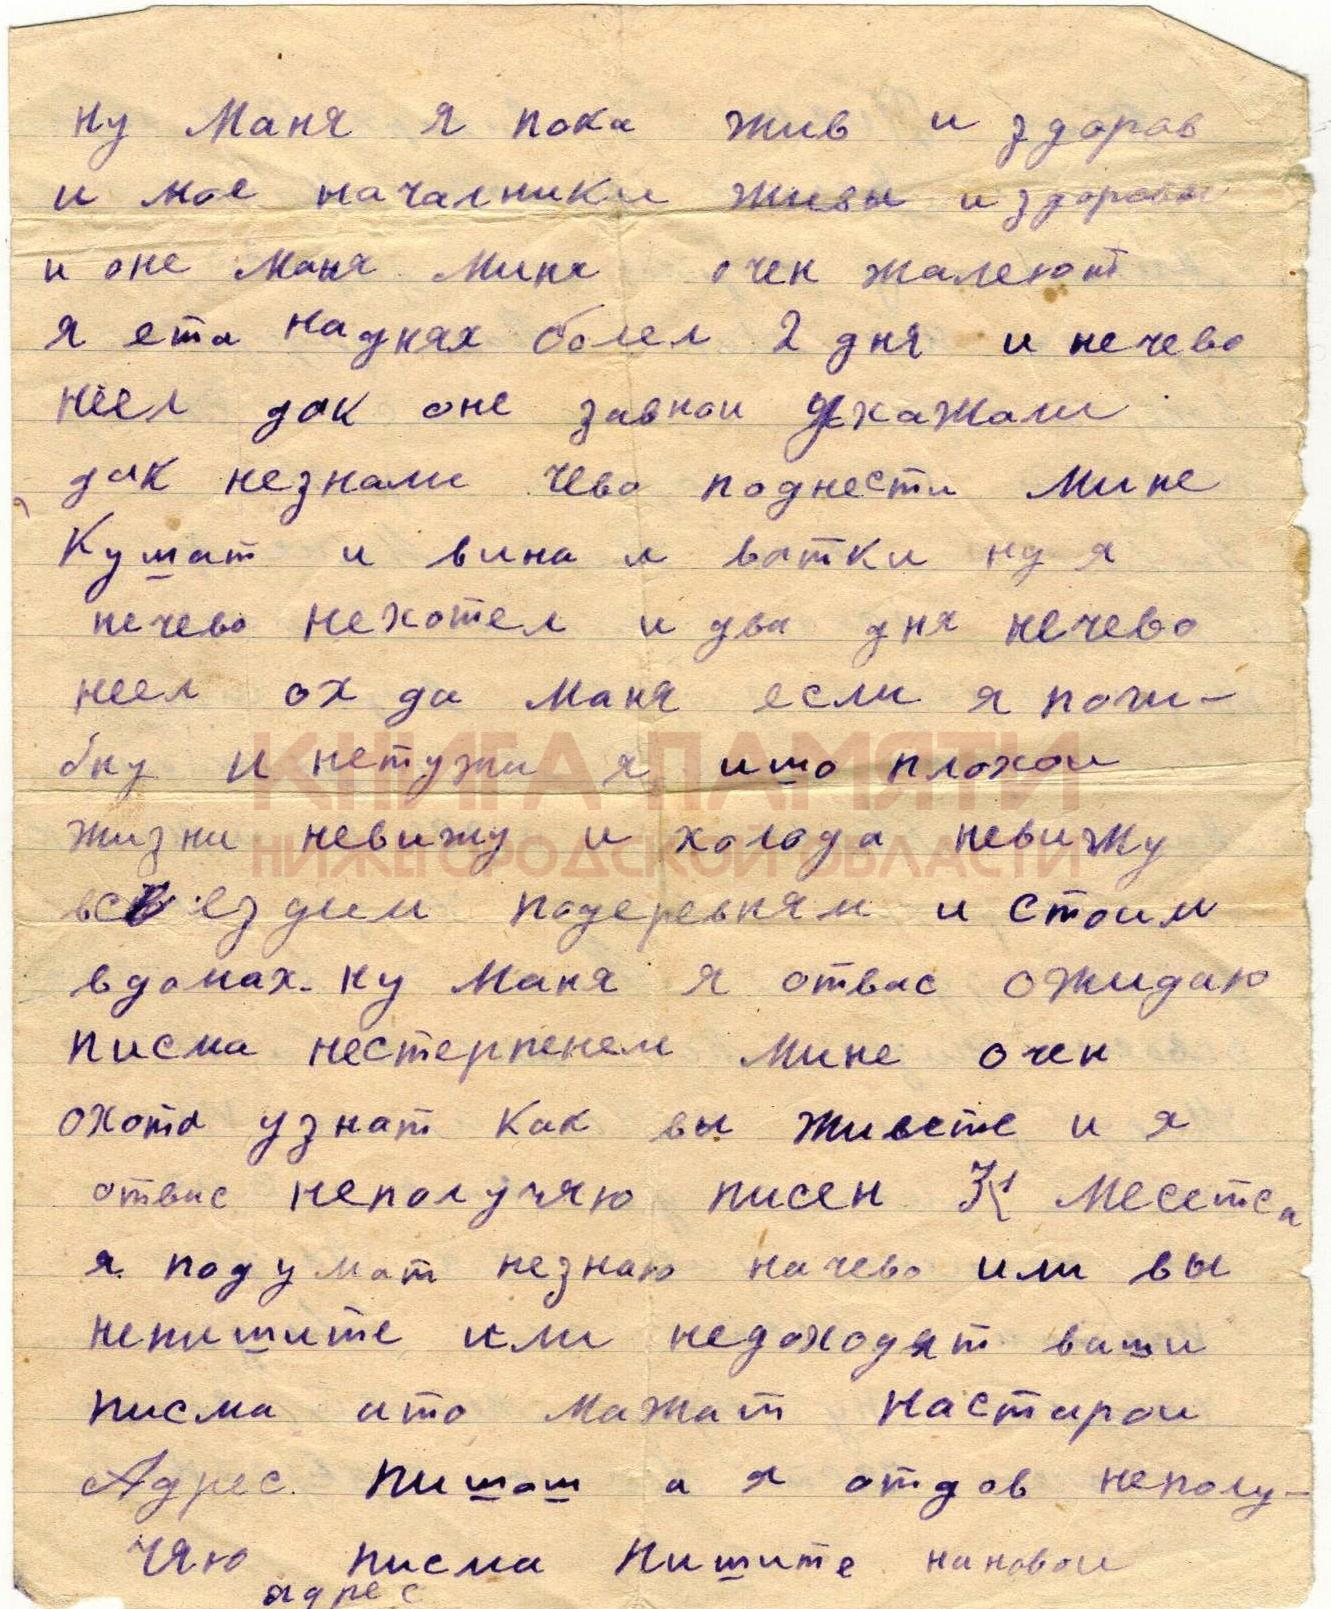 ну Маня я пока жив и здоров
и мое началники живы и здоровы
и оне Маня Миня очен жалеют
я ета наднях болел 2 дня и нечево
неел дак оне замнои ухажали
дак незнали чево поднести Мине
Кушат и вина и вотки ну я
нечево нехотел и два дня нечево
неел ох да Маня если я поги-
бну и нетужи я ишо плохои
КНИГА ПАМЯТИ
жизни невижу и холода невижу
НИЖЕГОРОДСКОЙ ОБЛАСТИ
всё ездим подеревням и стоим
вдомах. ну Маня я отвас ожидаю
писма нестерпенем Мине очен
охота узнат как вы живете и я
отвас неполучяю писем Месетса
я подумат незнаю начево или вы
непишите или недоходят ваши
писма ито Мажат настарои
Адрес. пишош а я отдов неполу-
чяю писма пишите нановои
адрес